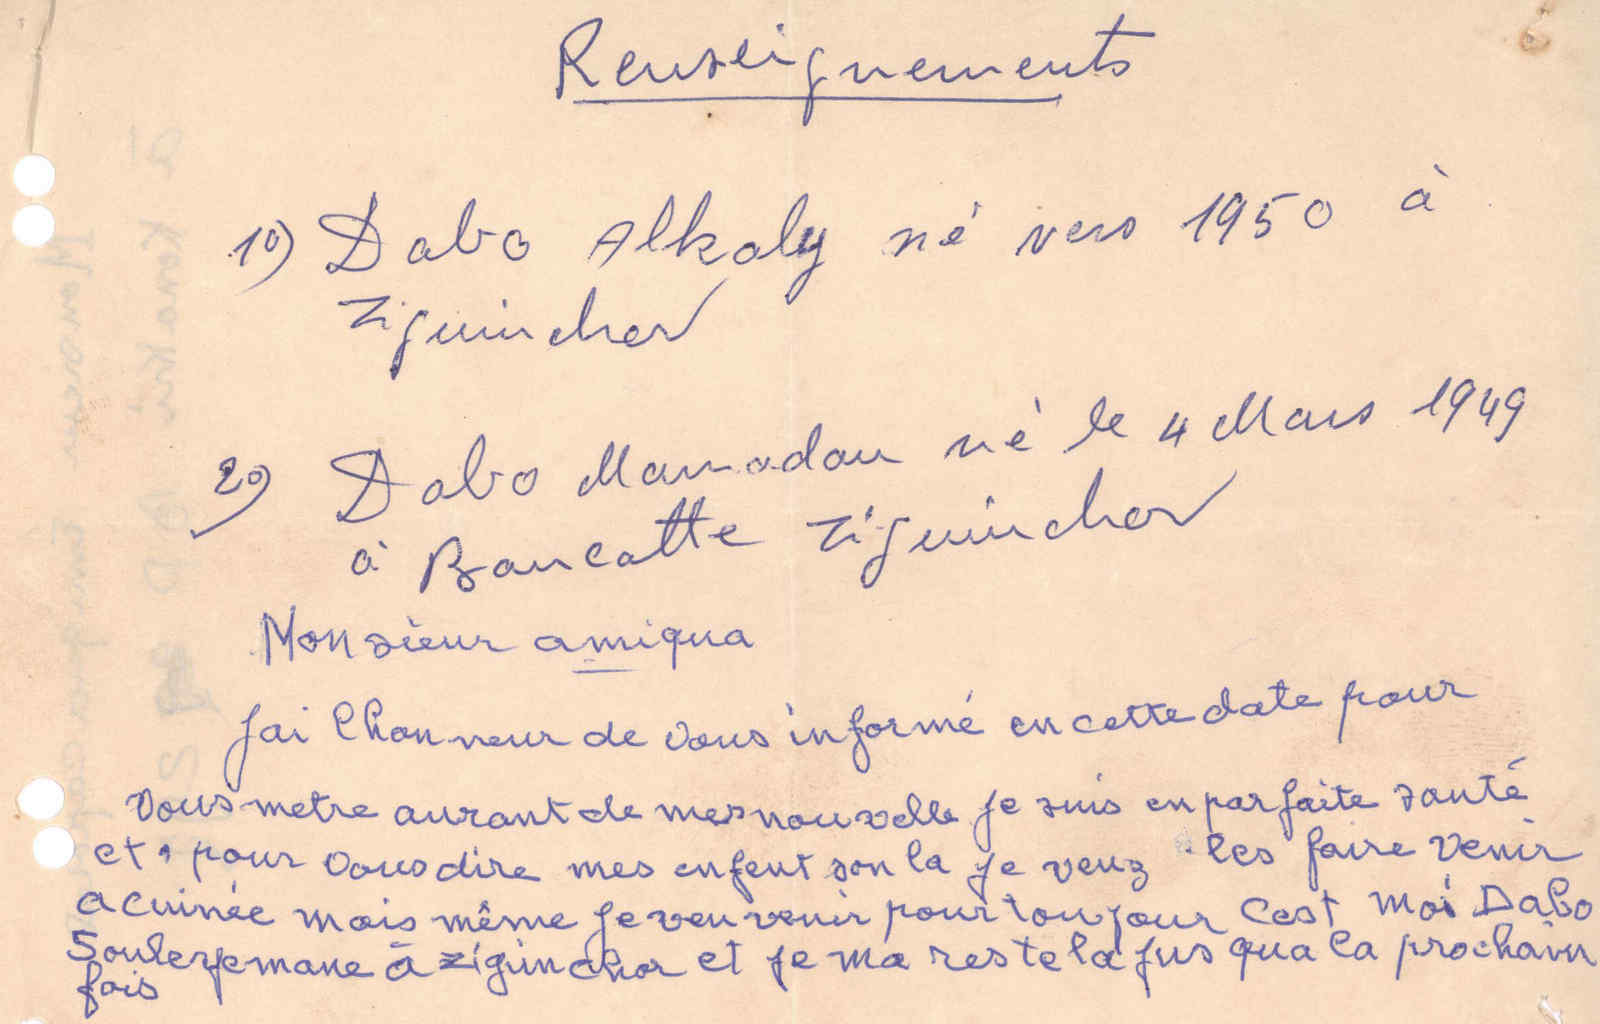 Renseignements
1º) Dabo Alkaly né vers 1950 à
Ziguinchor
2º) Dabo Mamadou né le 4 Mars 1949
à Boucotte Ziguinchor
Monsieur amiqua
Jai lhonneur de vous informé en cette date pour
vous metre aurant de mes nouvelle je suis en parfaite santé
et pour vous dire mes enfent son la je veuz les faire venir
a cuinée mais même je veu venir pour toujour Cest moi Dabo
Souleyemane à ziguinchor et je ma reste la jus qua la prochain
fois